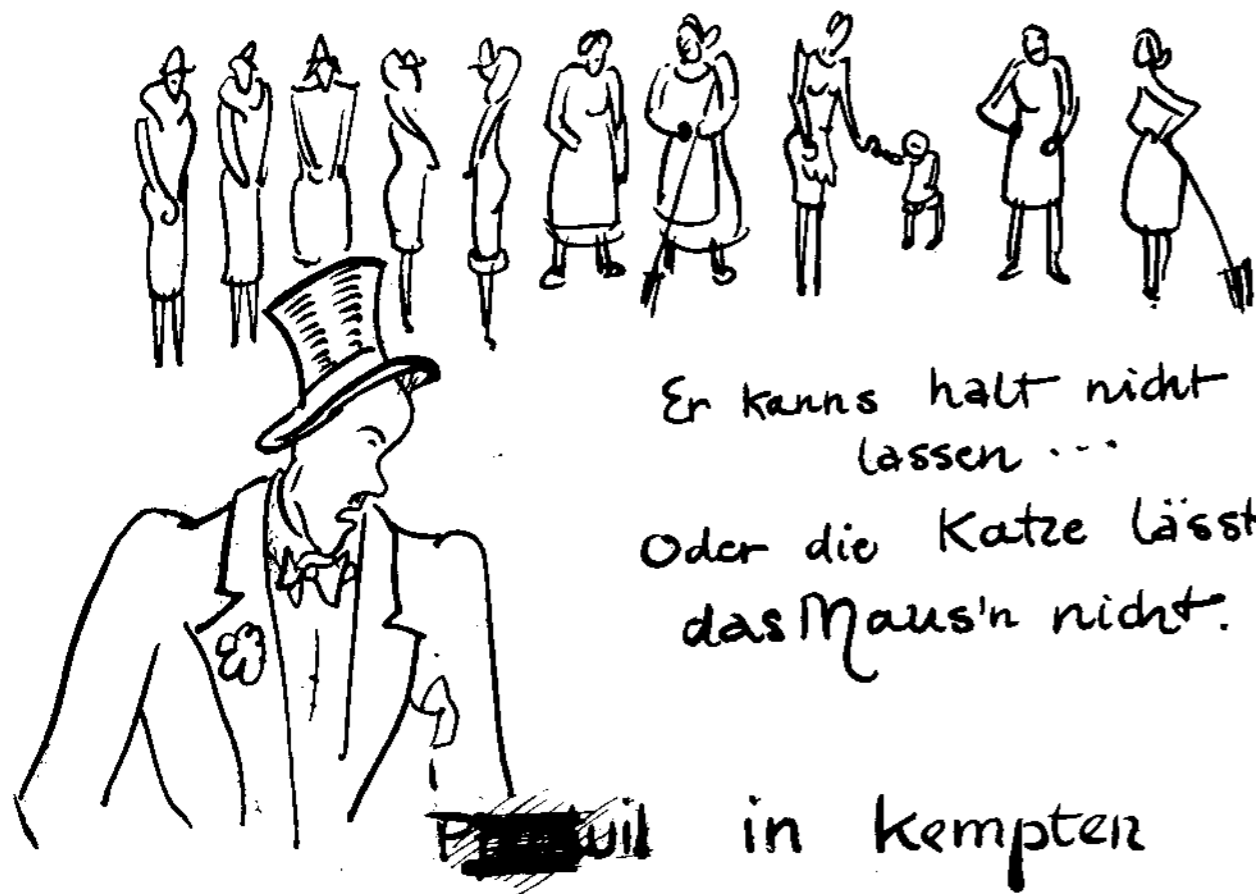 Er kanns halt nicht
lassen ...
Oder die Katze lässt
das Maus'n nicht.
in Kempten